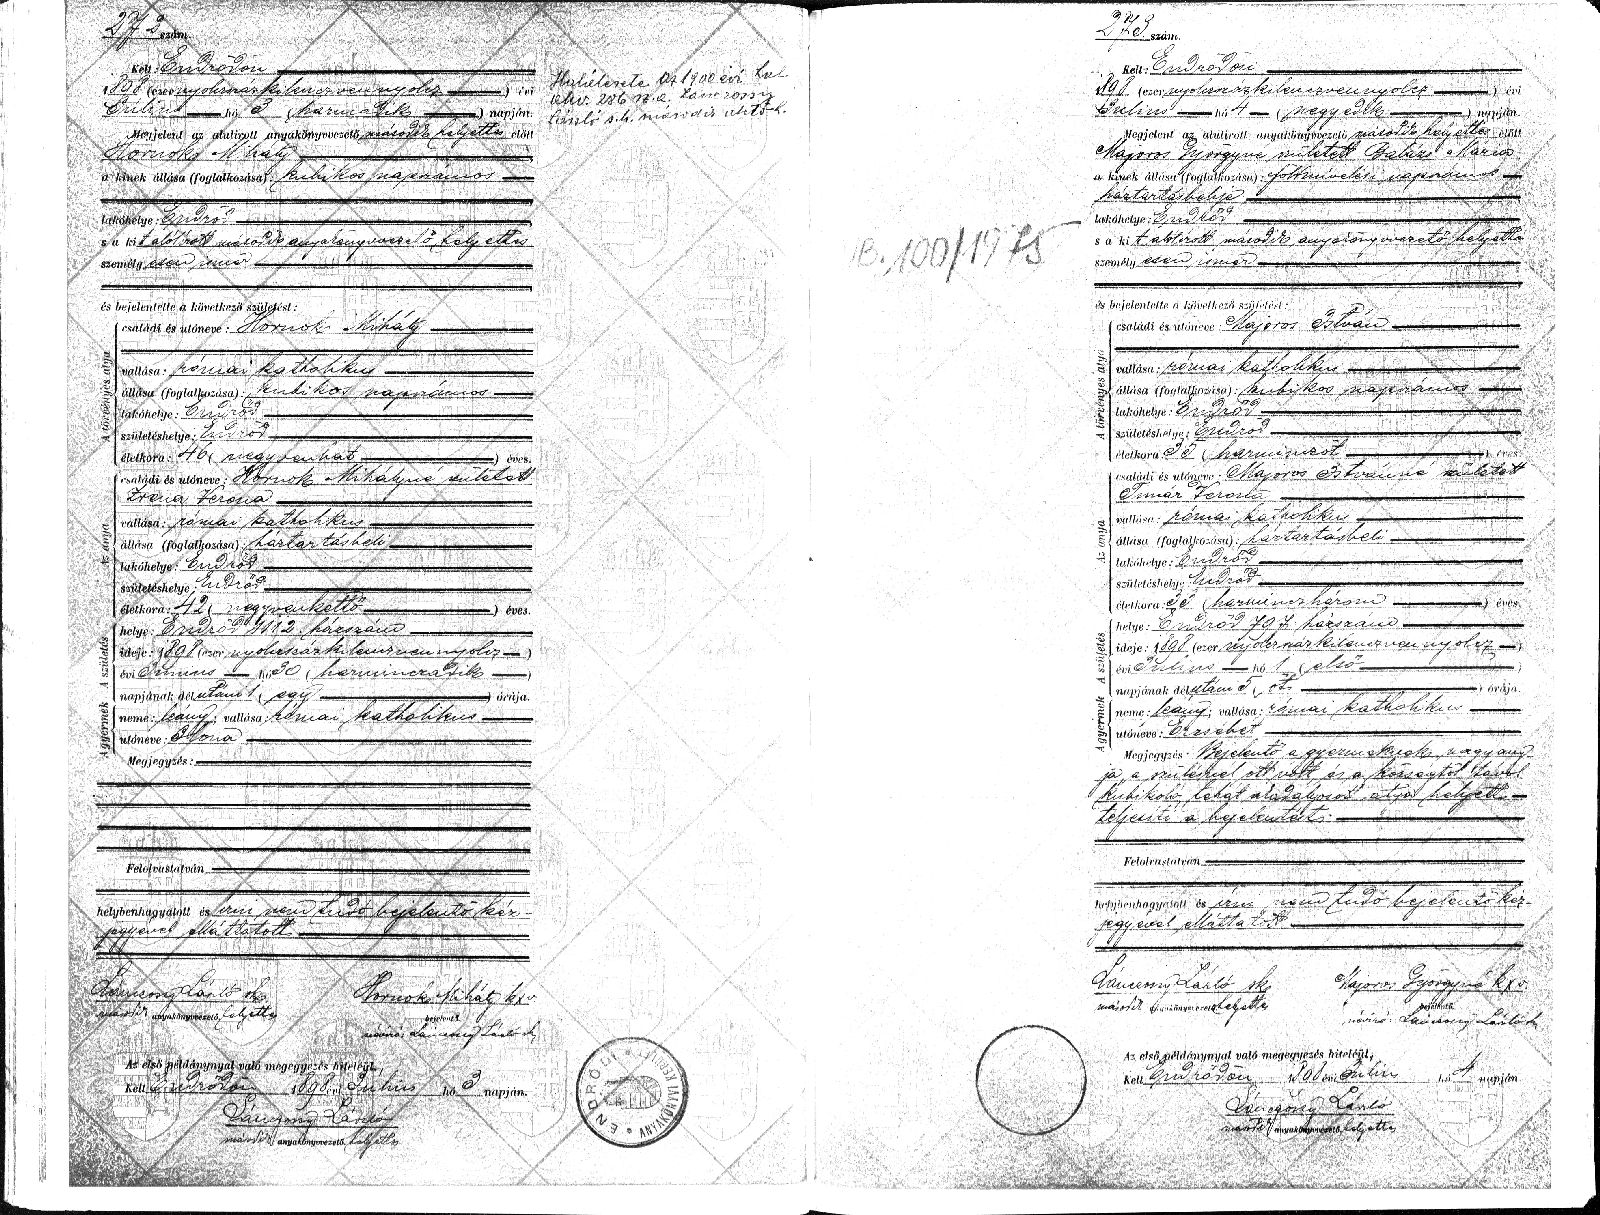 272 szám.
Kelt: Endrődön
1898 (ezernyolcszázkilenczvennyolcz) évi
Julius hó 3 (harmadik) napján.
Megjelent az alulirott anyakönyvvezető második helyettes előtt
Hornok Mihály
a kinek állása (foglalkozása): kubikos napszámos
lakóhelye: Endrőd
s a kit alólirott második anyakönyvvezető helyettes
személyesen ismer
és bejelentette a következő születést:
A törvényes atyja
családi és utóneve: Hornok Mihály
vallása: római katholikus
állása (foglalkozása): kubikos napszámos
lakóhelye: Endrőd
születéshelye: Endrőd
életkora: 46 (negyvenhat) éves.
Az anyja
családi és utóneve: Hornok Mihályné született
Verona
vallása: római katholikus
állása (foglalkozása): háztartásbeli
lakóhelye: Endrőd
születéshelye: Endrőd
életkora: 42 (negyvenkettő) éves.
A születés
helye: Endrőd 1112 házszám
ideje: 1898 (ezernyolcszázkilenczvennyolcz)
évi Junius hó 30 (harminczadik)
napjának délutáni 1 (egy) órája.
A gyermek
neme: leány; vallása: római katholikus
utóneve: Ilona
Megjegyzés:
Felolvastatván,
helybenhagyatott és irni nem tudó bejelentő kéz-
jegyével elláttatott
Lánczony László sk
második anyakönyvvezető helyettes
Hornok Mihály kxv
bejelentő
névíró: Lánczony László sk
Az első példánynyal való megegyezés hiteléül,
Kelt Endrődön 1898 évi Julius hó 3 napján.
Lánczony László
második anyakönyvvezető helyettes
Az 1900 évi
László s.k. második
ENDRŐDI
B. 100/1975
273 szám.
Kelt: Endrődön
1898 (ezernyolcszázkilenczvennyolcz) évi
Julius hó 4 (negyedik) napján.
Megjelent az alulirott anyakönyvvezető második helyettes előtt
Majoros Györgyné született Balázs Mária
a kinek állása (foglalkozása): földmívelési napszámos
háztartásbelije
lakóhelye: Endrőd
s a kit alólirott második anyakönyvvezető helyettes
személyesen ismer
és bejelentette a következő születést:
A törvényes atyja
családi és utóneve: Majoros István
vallása: római katholikus
állása (foglalkozása): kubikos napszámos
lakóhelye: Endrőd
születéshelye: Endrőd
életkora 35 (harminczöt) éves.
Az anyja
családi és utóneve: Majoros Istvánné született
Timár Veronka
vallása: római katholikus
állása (foglalkozása): háztartásbeli
lakóhelye: Endrőd
születéshelye: Endrőd
életkora: 33 (harminczhárom) éves.
A születés
helye: Endrőd 707 házszám
ideje: 1898 (ezernyolcszázkilenczvennyolcz)
évi Julius hó 1 (első)
napjának délutáni 5 (öt) órája.
A gyermek
neme: leány; vallása: római katholikus
utóneve: Erzsébet
Megjegyzés: Bejelentő a gyermeknek nagyany-
ja, a szülésnél ott volt és a községtől távol
kubikoló, tehát akadályozott atyja helyett
teljesíti a bejelentést.
Felolvastatván,
helybenhagyatott és irni nem tudó bejelentő kéz-
jegyével elláttatott
Lánczony László sk.
második anyakönyvvezető helyettes
Majoros Györgyné kxv.
bejelentő
névíró: Lánczony László sk
Az első példánynyal való megegyezés hiteléül,
Kelt Endrődön 1898 évi Julius hó 4 napján
Lánczony László
második anyakönyvvezető helyettes